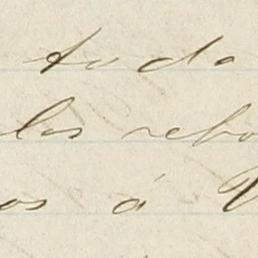 tudo
los rebo
os á V